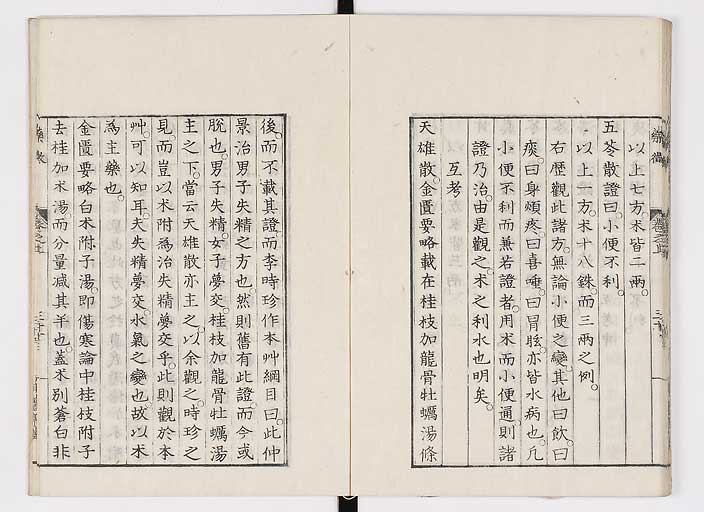 以上七方。朮皆二兩。
五苓散證曰。小便不利。
以上一方。朮十八銖。而三兩之例。
右歷觀此諸方。無論小便之變。其他曰飲。曰
痰。曰身煩疼。曰喜唾。曰冐眩。亦皆水病也。凡
小便不利而兼若證者。用朮而小便通。則諸
證乃治。由是觀之。朮之利水也明矣。
互考
天雄散。金匱要略載在桂枝加龍骨牡蠣湯條
後。而不載其證。而李時珍作本艸綱目曰。此仲
景治男子失精之方也。然則舊有此證。而今或
脫也。男子失精。女子夢交。桂枝加龍骨牡蠣湯
主之。下。當云天雄散亦主之。以余觀之。時珍之
見。而豈以朮附爲治失精夢交乎。此則觀於本
艸。可以知耳。夫失精夢交。水氣之變也。故以朮
爲主藥也。
金匱要略白朮附子湯。卽傷寒論中桂枝附子
去桂加朮湯。而分量減其半也。蓋朮別蒼白。非